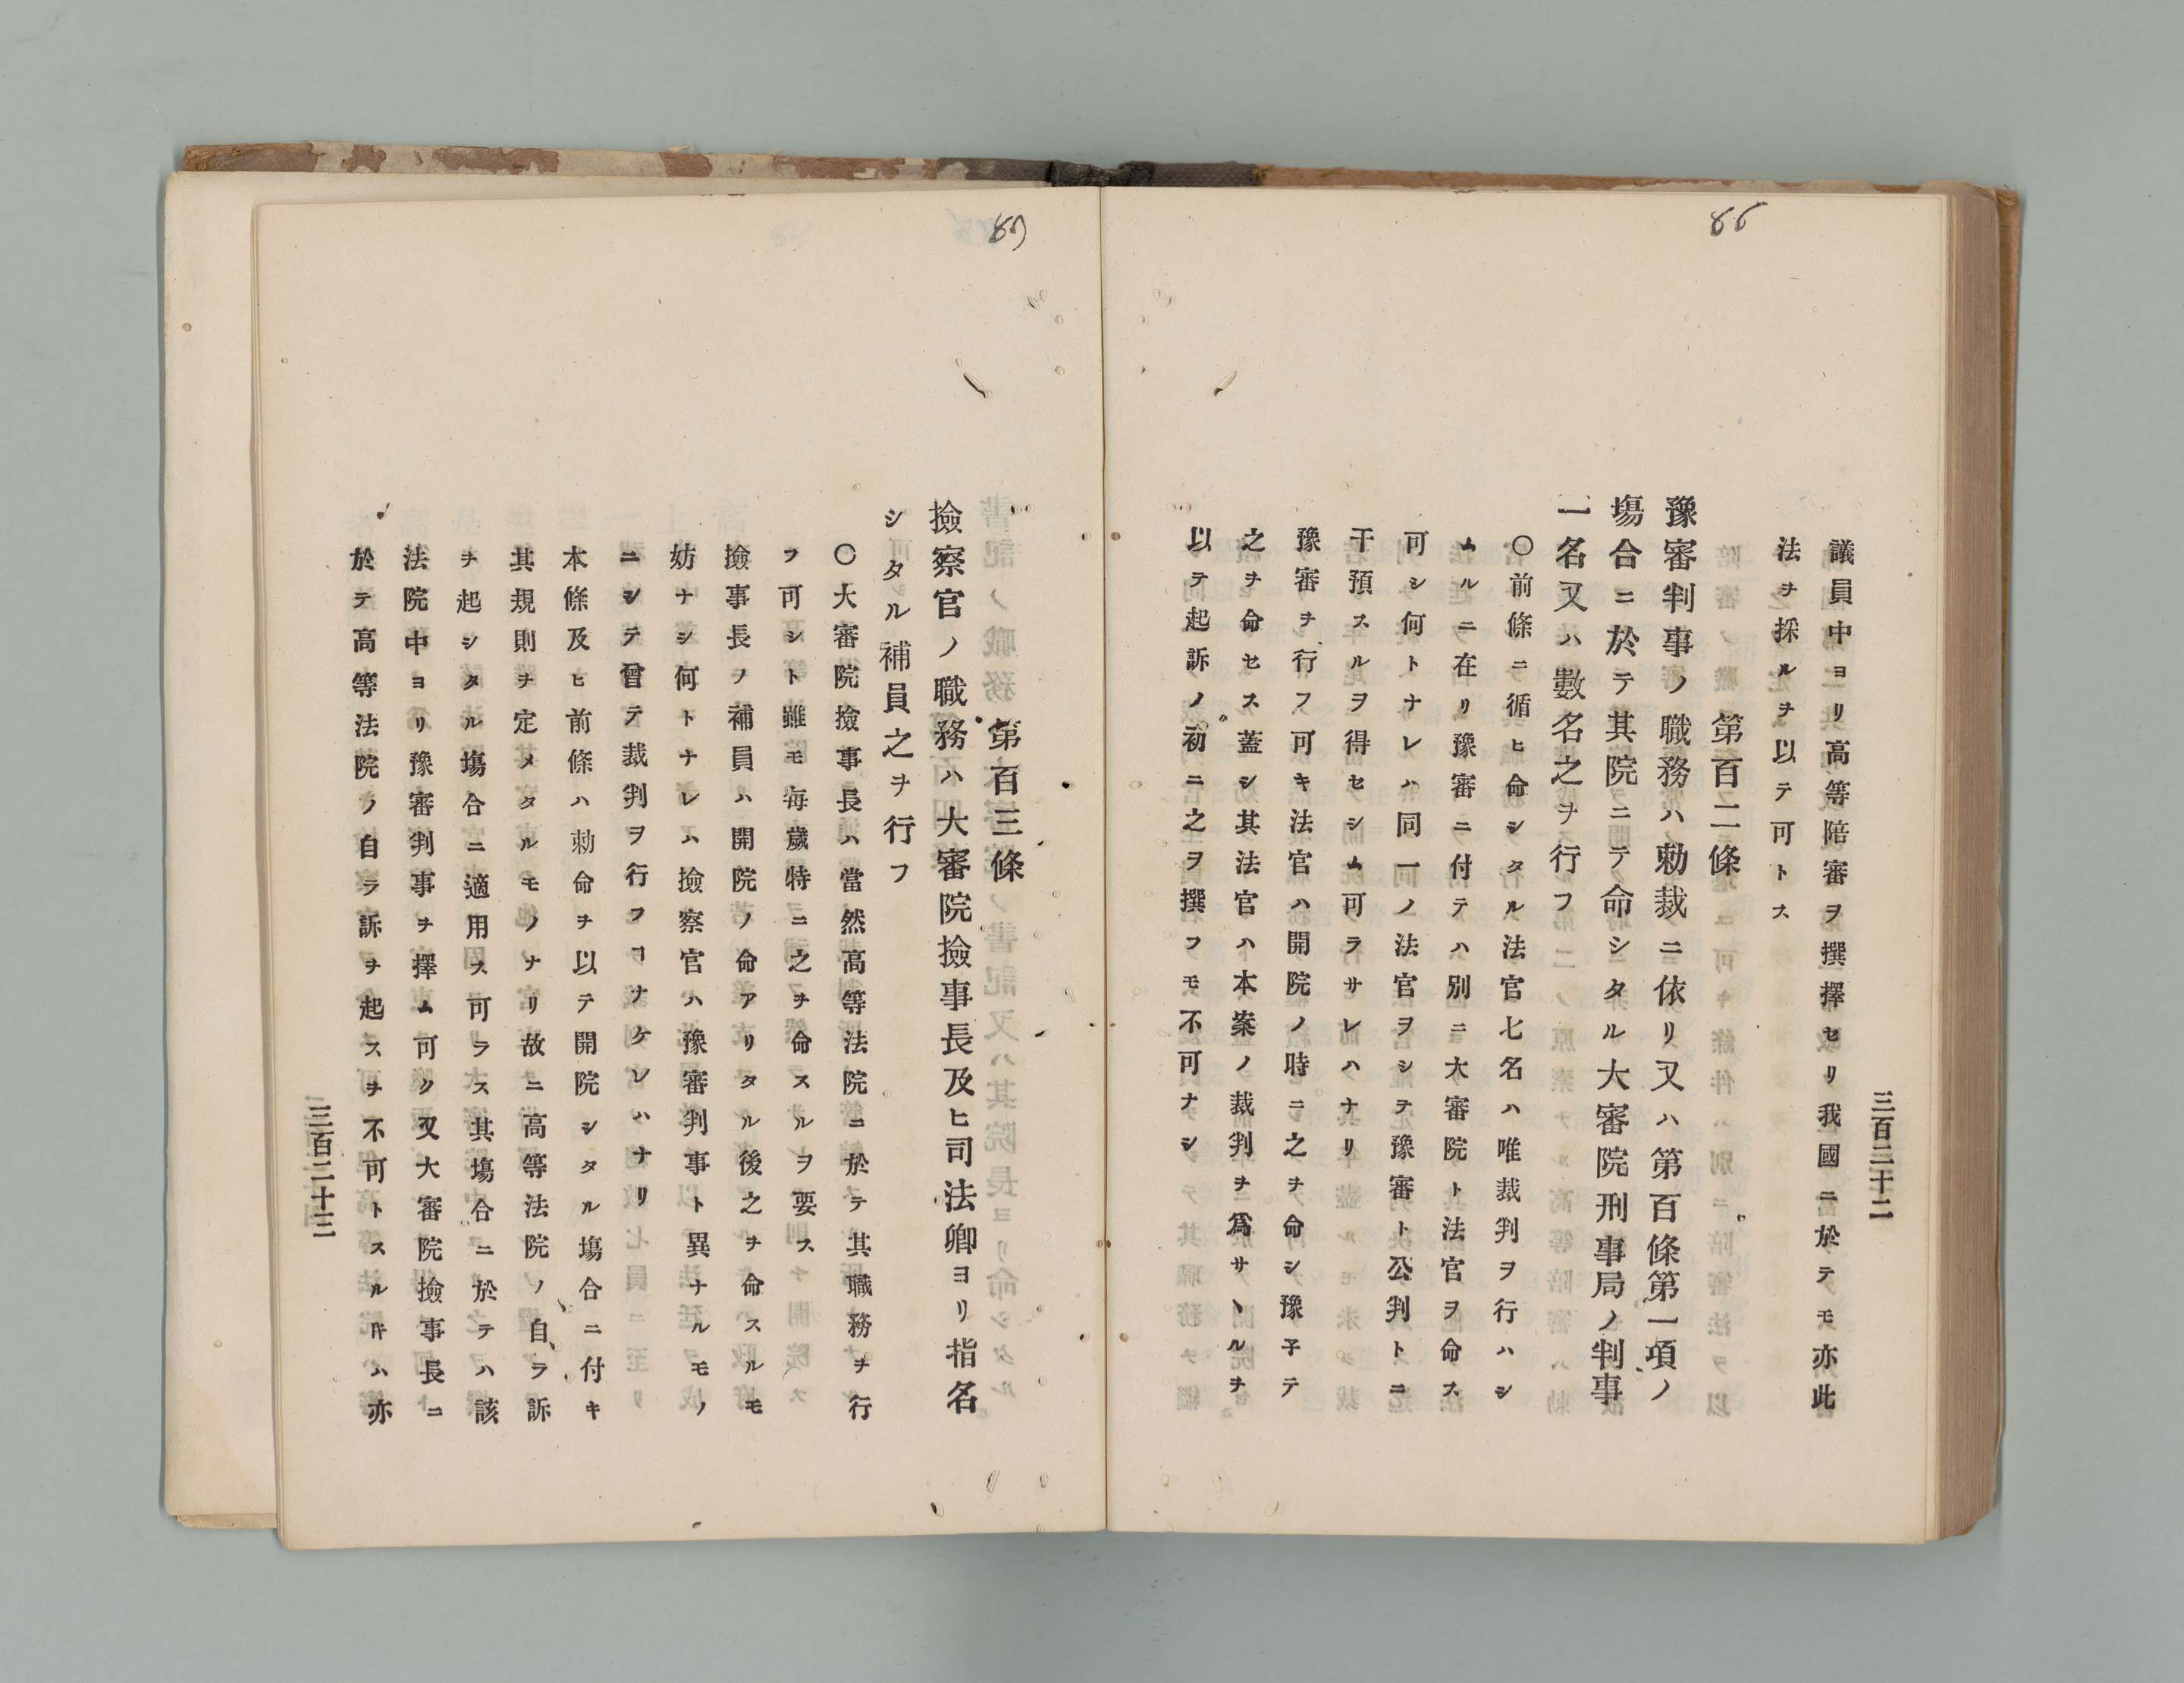 86
三百二十二
議員中ヨリ高等陪審ヲ撰擇セリ我國ニ於テモ亦此
法ヲ採ルヲ以テ可トス
第百二條
豫審判事ノ職務ハ勅裁ニ依リ又ハ第百條第一項ノ
塲合ニ於テ其院ニテ命シタル大審院刑事局ノ判事
一名又ハ數名之ヲ行フ
〇前條ニ循ヒ命シタル法官七名ハ唯裁判ヲ行ハシ
ムルニ在リ豫審ニ付テハ別ニ大審院ト法官ヲ命ス
可シ何トナレハ同一ノ法官ヲシテ豫審ト公判トニ
干預スルヲ得セシム可ラサレハナリ
豫審ヲ行フ可キ法官ハ開院ノ時ニ之ヲ命シ豫予テ
之ヲ命セス蓋シ其法官ハ本案ノ裁判ヲ爲サヽルヲ
以テ起訴ノ初ニ之ヲ撰フモ不可ナシ
第百三條
撿察官ノ職務ハ大審院撿事長及ヒ司法卿ヨリ指名
シタル補員之ヲ行フ
〇大審院撿事長ハ當然高等法院ニ於テ其職務ヲ行
フ可シト雖モ每歲特ニ之ヲ命スルヲ要ス
撿事長ノ補員ハ開院ノ命アリタル後之ヲ命スルモ
妨ナシ何トナレハ撿察官ハ豫審判事ト異ナルモノ
ニシテ曾テ裁判ヲ行フヿナケレハナリ
本條及ヒ前條ハ勅命ヲ以テ開院シタル塲合ニ付キ
其規則ヲ定メタルモノナリ故ニ高等法院ノ自ラ訴
ヲ起シタル塲合ニ適用ス可ラス其塲合ニ於テハ該
法院中ヨリ豫審判事ヲ擇ム可ク又大審院撿事長ニ
於テ高等法院ノ自ラ訴ヲ起スヲ不可トスルキハ亦
三百二十三